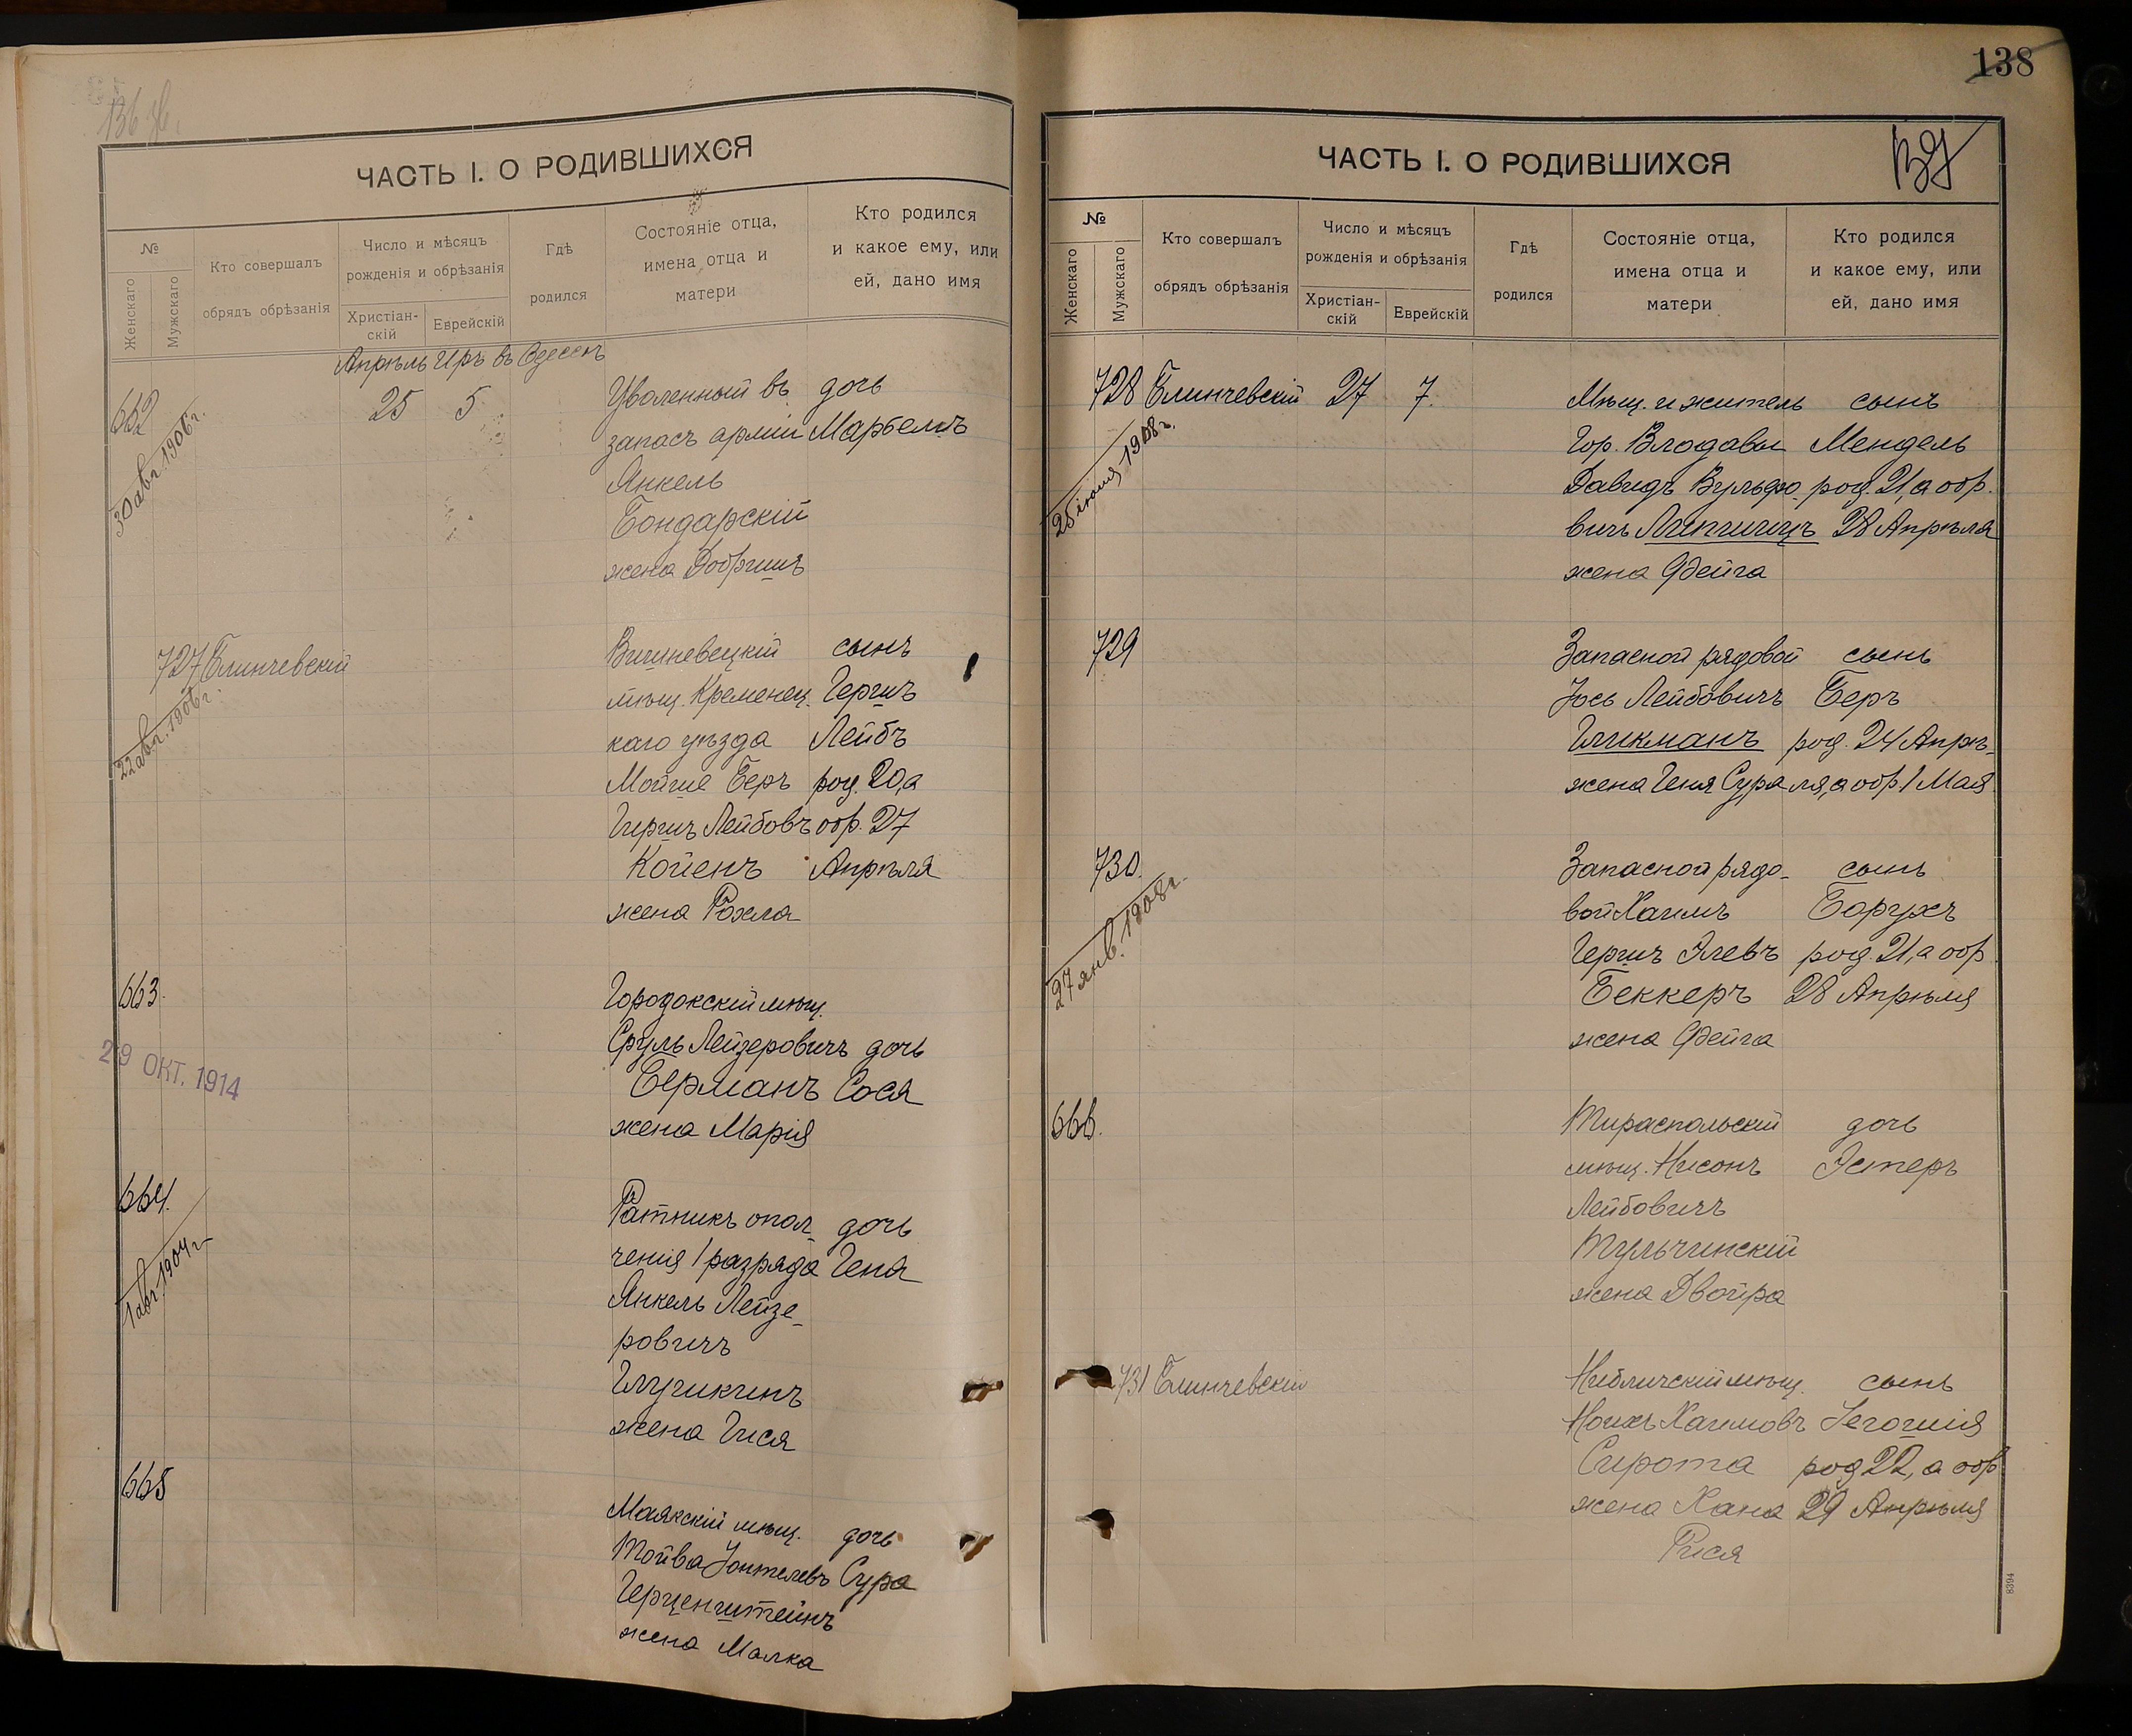 ЧАСТЬ I. О РОДИВШИХСЯ
№
Женскаго
Мужскаго
Кто совершалъ
обрядъ обрѣзанія
Число и мѣсяцъ
рожденія и обрѣзанія
Христіан-
скій
Еврейскій
Гдѣ
родился
Состояніе отца,
имена отца и
матери
Кто родился
и какое ему, или
ей, дано имя
Апрѣль Иръ въ Одессѣ
662 25 5 Уволенный въ дочь
запасъ арміи
30 авг 1906 г.
Янкель
Бондарскій
жена Добришъ
727 Блинчевскій Вишневецкій сынъ
мѣщ. Кременец. Гершъ
22 авг. 1906 г.
каго уѣзда Лейбъ
Мойше Беръ род. 20, а
Гершъ Лейбовъ обр. 27
Койенъ Апрѣля
жена Рохла
663. Городокскій мѣщ.
Сруль Лейзеровичъ дочь
29 ОКТ. 1914
Берманъ Сося
жена Марія
664. Ратникъ опол_ дочь
ченія 1 разряда Геня
1 авг. 1904 г.
Янкель Лейзе_
ровичъ
жена Гися
665 Маякскій мѣщ. дочь
Тойва Сура
Герценштейнъ
жена Малка
138
ЧАСТЬ I. О РОДИВШИХСЯ
№
Женскаго
Мужскаго
Кто совершалъ
обрядъ обрѣзанія
Число и мѣсяцъ
рожденія и обрѣзанія
Христіан-
скій
Еврейскій
Гдѣ
родился
Состояніе отца,
имена отца и
матери
Кто родился
и какое ему, или
ей, дано имя
728 Блинчевскій 27 7. Мѣщ. и житель сынъ
Гор. Влодавы Мендель
25 іюня 1908 г.
Давидъ Вульфо_ род. 21, а обр.
вичъ 28 Апрѣля
жена Фейга
729 Запасной рядовой сынъ
Іось Лейбовичъ Беръ
Гликманъ род. 24 Апрѣ_
жена Геня Сура ля, а обр 1 Мая
730. Запасной рядо_ сынъ
вой Хаимъ Борухъ
27 янв. 1908 г.
Гершъ Элевъ род. 21, а обр
Беккеръ 28 Апрѣля
жена Фейга
666. Тираспольскій дочь
мѣщ. Нисонъ Эстеръ
Лейбовичъ
Тульчинскій
жена Двойра
731 Блинчевскій мѣщ. сынъ
Хаимовъ
Сирота род 22, а обр
жена Хана 29 Апрѣля
Рися
8394